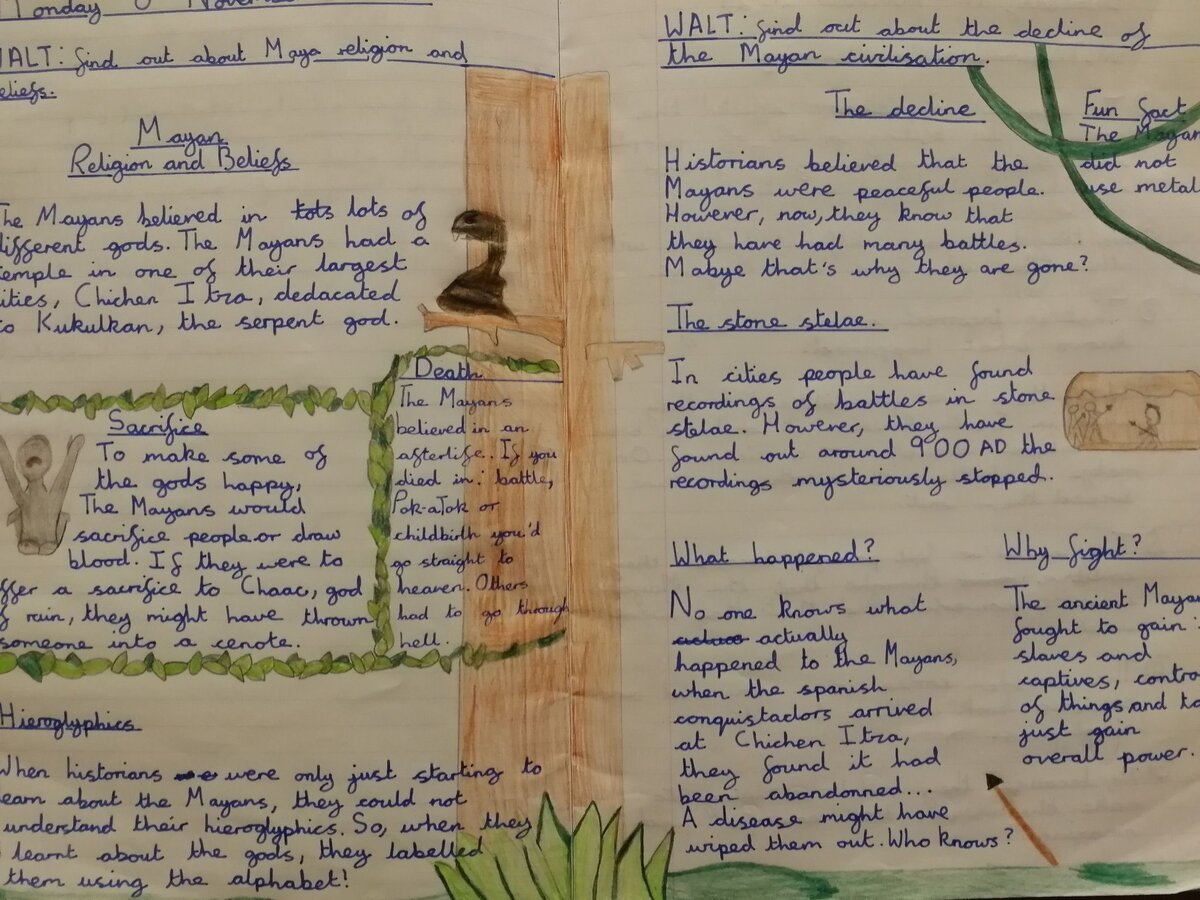 Monday
WALT: find out about Maya religion and
beliefs.
Mayan
Religion and Beliefs
The Mayans believed in lots lots of
different gods. The Mayans had a
temple in one of their largest
cities, Chichen Itza, dedacated
to Kukulkan, the serpent god.
Sacrifice
To make some of
the gods happy,
The Mayans would
sacrifice people or draw
blood. If they were to
offer a sacrifice to Chaac, god
of rain, they might have thrown
someone into a cenote.
Death
The Mayans
believed in an
afterlife. If you
died in: battle,
Pok-aTok or
childbirth you'd
go straight to
heaven. Others
had to go through
hell.
Hieroglyphics
When historians were only just starting to
learn about the Mayans, they could not
understand their hieroglyphics. So, when they
learnt about the gods, they labelled
them using the alphabet!
WALT: find out about the decline of
the Mayan civilisation.
The decline
Historians believed that the
Mayans were peaceful people.
However, now, they know that
they have had many battles.
Mabye that's why they are gone?
Fun fact
The Mayan
did not
use metal
The stone stelae.
In cities people have found
recordings of battles in stone
stelae. However, they have
found out around 900 AD the
recordings mysteriously stopped.
What happened?
No one knows what
actually
happened to the Mayans,
when the spanish
conquistadors arrived
at Chichen Itza,
they found it had
been abandonned...
A disease might have
wiped them out. Who knows?
Why fight?
The ancient Mayan
fought to gain:
slaves and
captives, contro
of things and to
just gain
overall power.